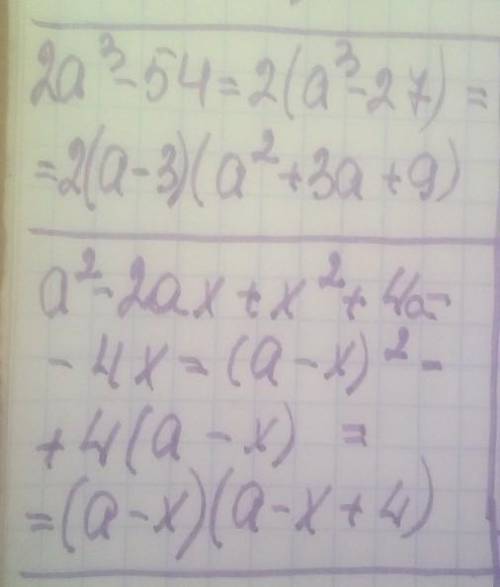 2a³-54=2(a³-27)=
=2(a-3)(a²+3a+9)
a²-2ax+x²+4a-
-4x=(a-x)²-
+4(a-x) =
=(a-x)(a-x+4)